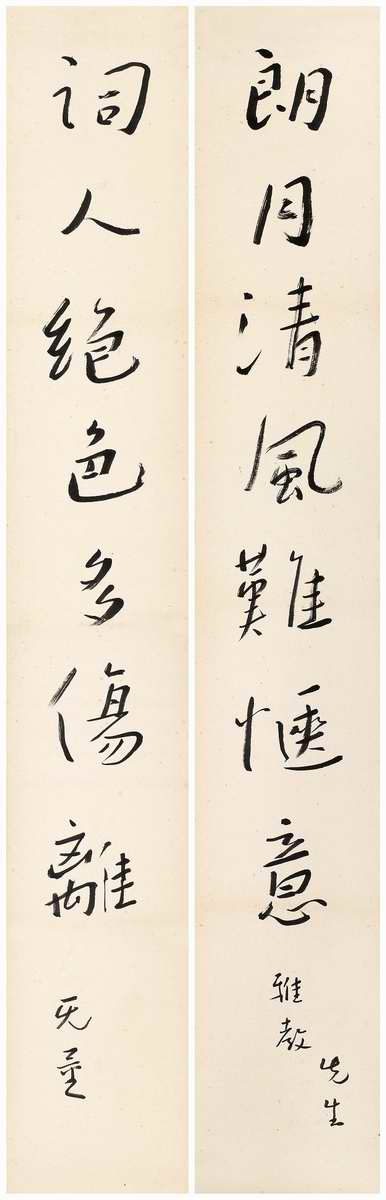 朗月清風難愜意
先生
雅教
詞人絕色多傷離
无量